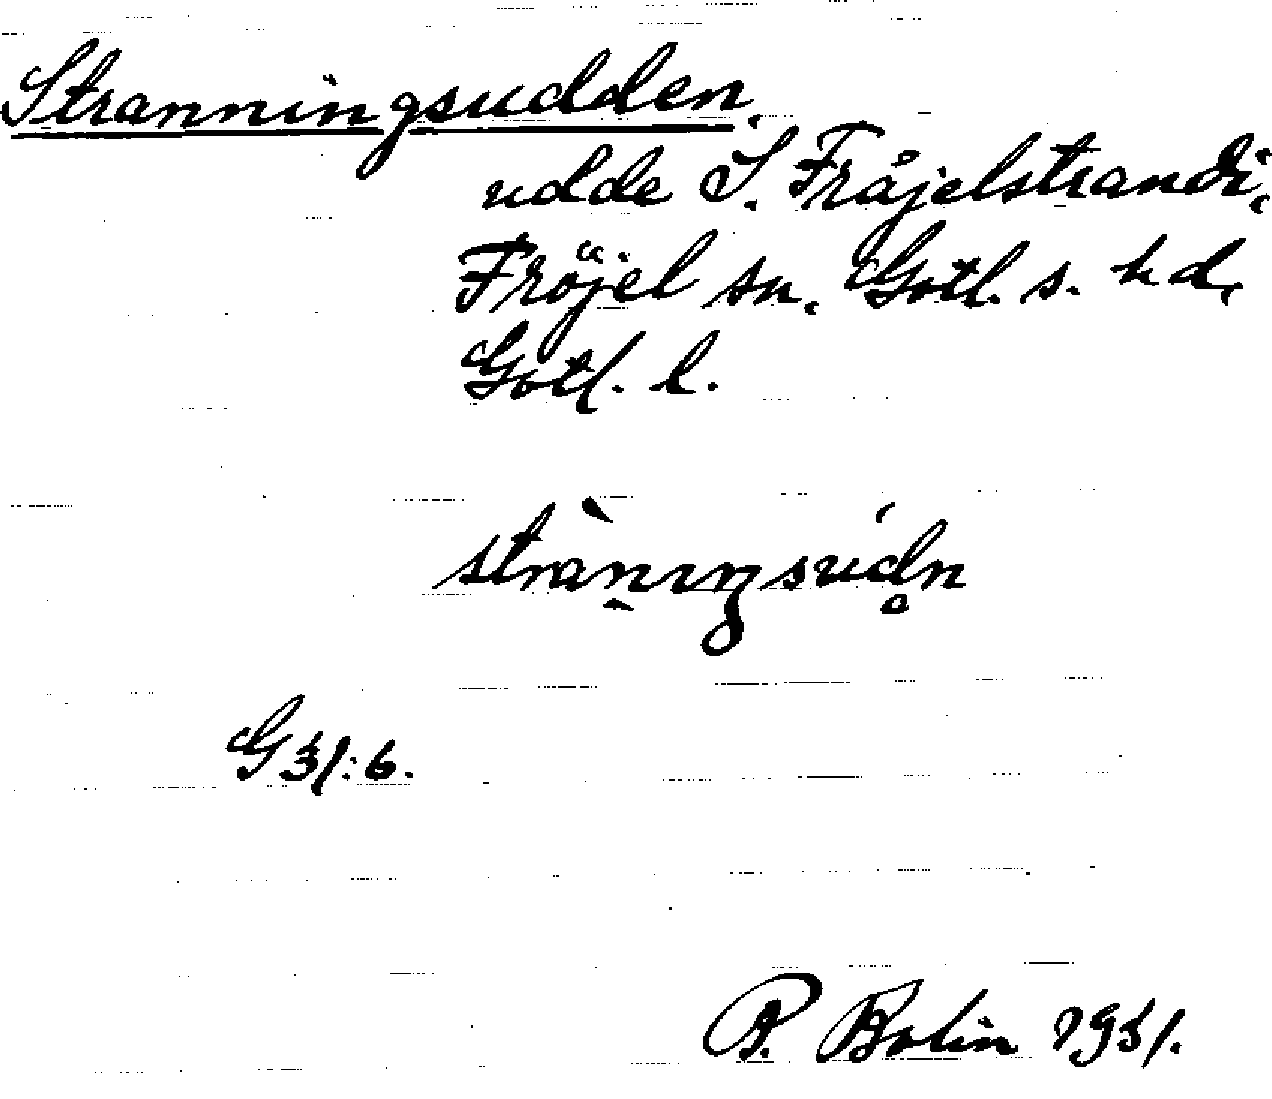 Stranningsudden.
udde S. Fråjelstrandi,
Fröjel sn. Gotl. s. hd,
Gotl. l.
stràṇıŋsúdn̥
G 31:6.
P. Bolin 1931.